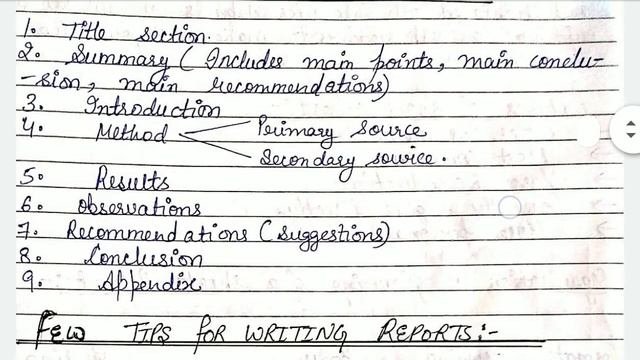 1. Title section.
2. Summary (Includes main points, main conclu-
-sion, main recommendations)
3. Introduction
4. Method Primary Source
Secondary source.
5. Results
6. Observations
7. Recommendations (suggestions)
8. Conclusion
9. Appendix
FEW TIPS FOR WRITING REPORTS:-